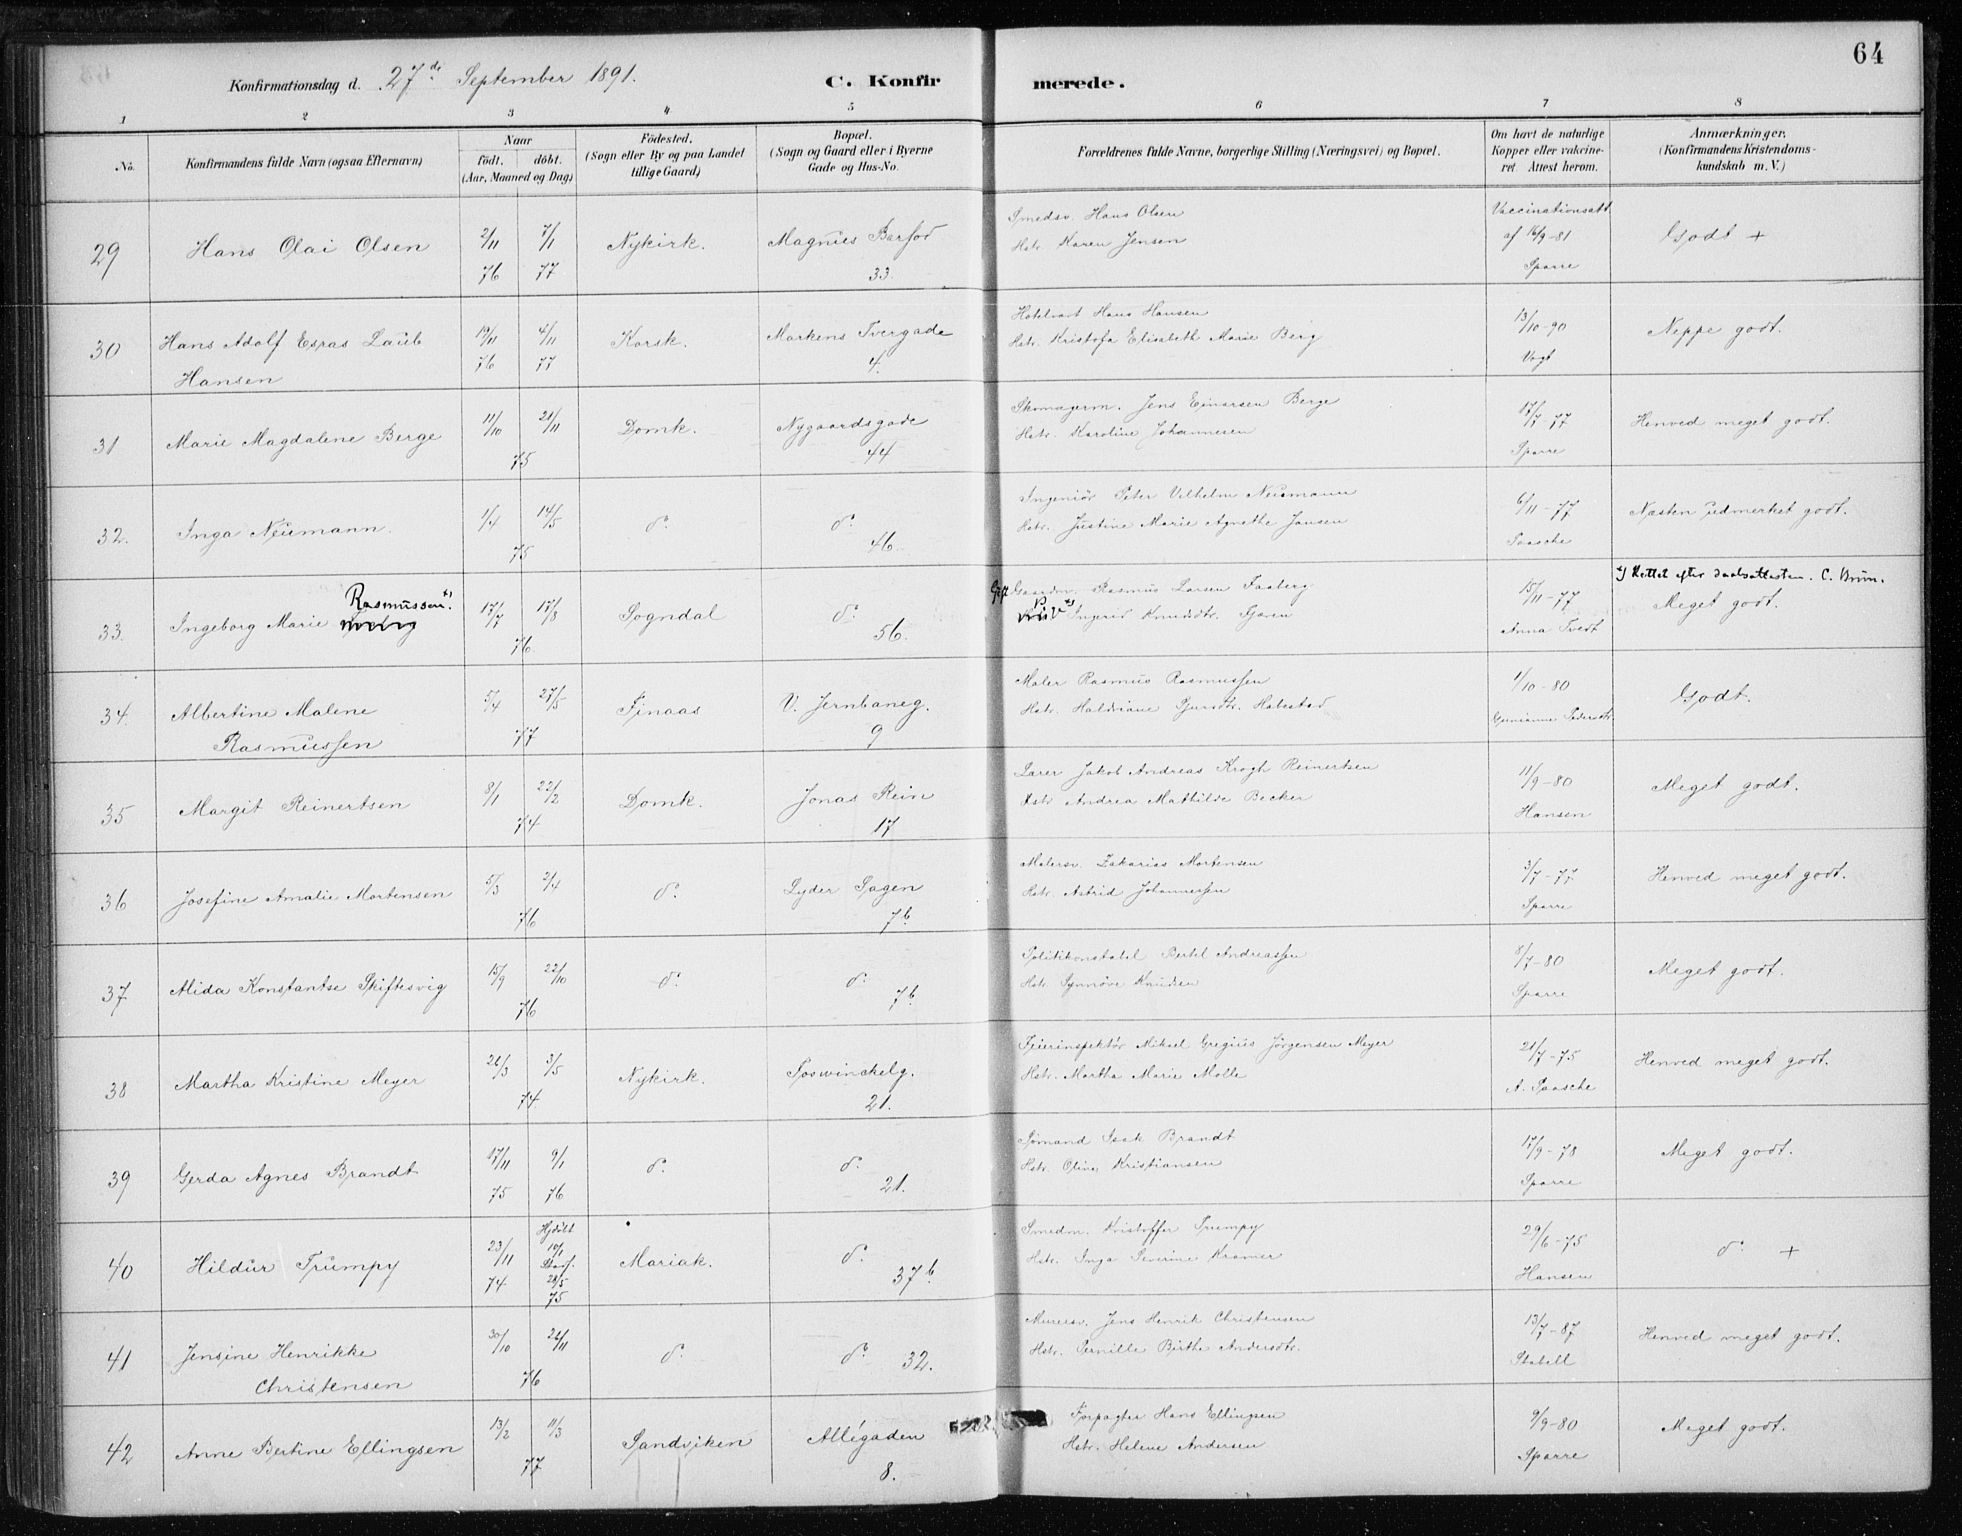 64
Konfirmationsdag d. 27de September 1891. C. Konfirmerede.
1 2 3 4 5 6 7 8
No. Konfirmandens fulde Navn (ogsaa Efternavn) Naar født. døbt. (Aar, Maaned og Dag) Fødested. (Sogn eller By og paa Landet tillige Gaard) Bopæl. (Sogn og Gaard eller i Byerne Gade og Hus-No. Forældrenes fulde Navne, borgerlige Stilling (Næringsvei) og Bopæl. Om havt de naturlige Kopper eller vakcineret. Attest herom. Anmærkninger. (Konfirmandens Kristendomskundskab m. V.)
29 Hans Olai Olsen 2/11 76 7/1 77 Nykirk. Magnus Barfod 33. Smedsv. Hans Olsen
Hstr. Karen Jensen Vaccinationsatt. af 16/9-81 Sparre Godt +
30 Hans Adolf Esras Laub Hansen 19/11 76 4/11 77 Korsk. Markens Tvergade 4. Hotelvært Hans Hansen
Hstr. Kristofa Elisabeth Marie Berg 13/10-90 Vogt Neppe godt.
31 Marie Magdalene Berge 11/10 21/11 75 Domk. Nygaardsgade 44 Skomagerm. Jens Einarsen Berge
Hstr. Karoline Johannesen 17/7-77 Sparre Henved meget godt.
32. Inga Neumann. 1/4 14/5 75 do do 46. Ingeniør Peter Vilhelm Neumann
Hstr. Justine Marie Agnethe Jansen 6/11-77 Paasche Næsten udmerket godt.
33. Ingeborg Marie Rasmussen. x) 17/7 17/8 76. Sogndal do 56. Gaardm. Rasmus Larsen Faaberg
Pige x) Ingerid Knudsdtr. 15/11-77 Anna Tvedt x) Rettet efter daabsattesten. C. Brun.
Meget godt.
34. Albertine Malene Rasmussen 5/4 27/5 77 Finaas V. Jernbaneg. 9 Maler Rasmus Rasmussen
Hstr. 1/10-80 Godt.
35 Margit Reinertsen 8/1 22/2 74 Domk. Jonas Rein 17 Lærer Jakob Andreas Krogh Reinertsen
Hstr. Andrea Mathilde Becker 11/9-80 Hansen Meget godt.
36 Josefine Amalie Mortensen 5/3 2/4 76 do Lyder Sagen 7b Malersv. Zakarias Mortensen
Hstr. Astrid Johannessen 3/7-77. Sparre Henved meget godt.
37 Alida Konstantse Skiftesvig 15/9 22/10 76 do do 7b. Politikonstabel Bertel Andreassen
Hstr. Synnøve Knudsen 8/7-80 Sparre Meget godt.
38 Martha Kristine Meyer 26/3 3/5 74. Nykirk. Foswinckelg. 21. Feierinspektør Mikael Gregius Jørgensen Meyer
Hstr. Martha Marie Molle 21/7-75 A. Paasche Henved meget godt.
39 Gerda Agnes Brandt 17/11 75 9/1 76 do do 21. Sømand Isak Brandt
Hstr. Olina Kristiansen 17/9-78 Sparre Meget godt.
40 Hildur Trumpy 23/11 74. Hjdøbt 10/1 Stadf. 28/5 75 Mariak. do 37b. Smedm. Kristoffer Trumpy
Hstr. Inga Severine Kramer 29/6-75 Hansen do +
41 Jensine Henrikke Christensen 30/10 26/11 76 do do 32. Murersv. Jens Henrik Christensen
Hstr. Pernille Birthe Andersdtr. 13/7-87 Stabell Henved meget godt.
42 Anne Bertine Ellingsen 13/2 11/3 77 Sandviken Allégaden 8. Forpagter Hans Ellingsen
Hstr. Helene Andersen 9/9-80 Sparre Meget godt.